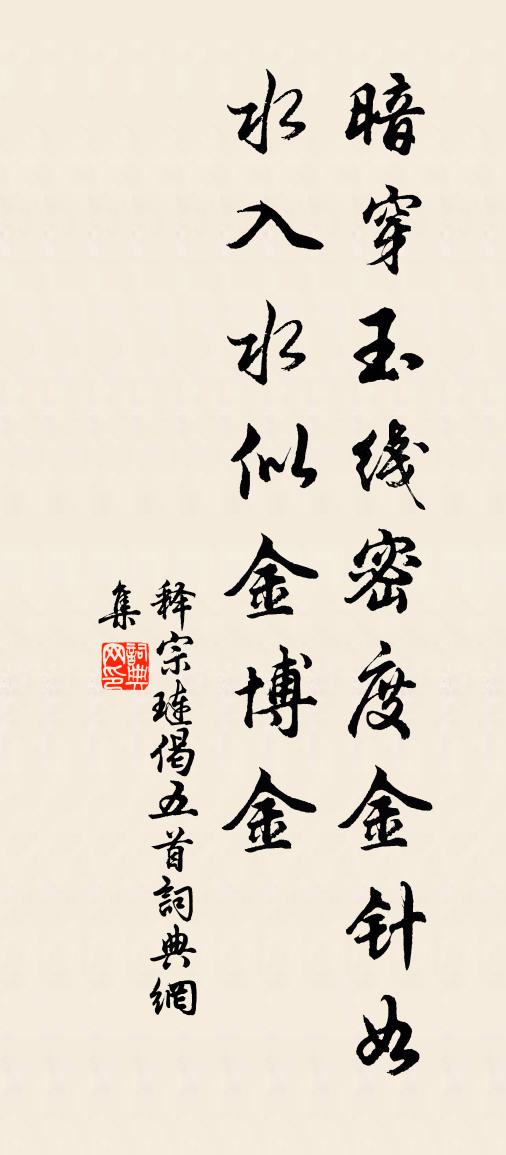 暗穿玉线密度金针如
水入水似金博金
释宗琏偈五首詞典網
集
詞典
网印